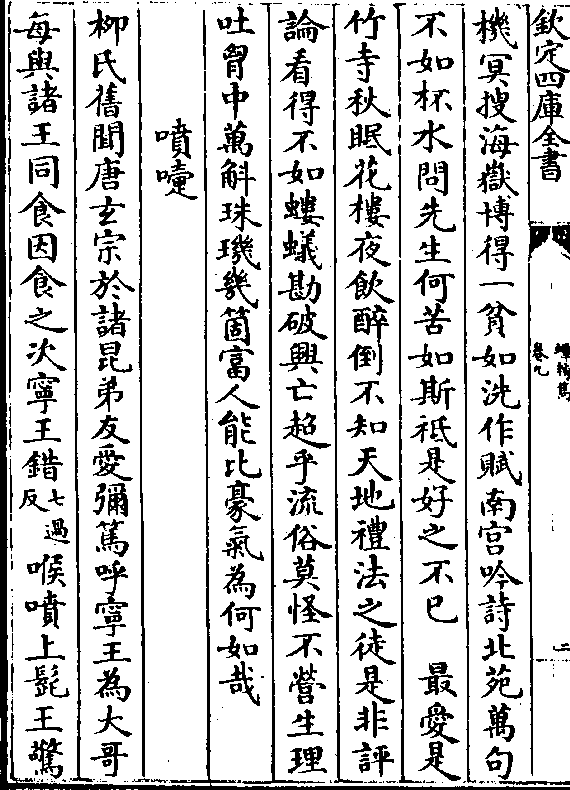 欽定四庫全書
卷九
二
機冥搜海嶽博得一貧如洗作賦南宫吟詩北苑萬句
不如杯水問先生何苦如斯祗是好之不已　最愛是
竹寺秋眠花樓夜飲醉倒不知天地禮法之徒是非評
論看得不如螻蟻勘破興亡超乎流俗莫怪不營生理
吐胷中萬斛珠璣幾箇富人能比豪氣為何如哉
噴嚏
柳氏舊聞唐玄宗於諸昆弟友愛彌篤呼寧王為大哥
每與諸王同食因食之次寧王錯七過反喉噴上髭王驚